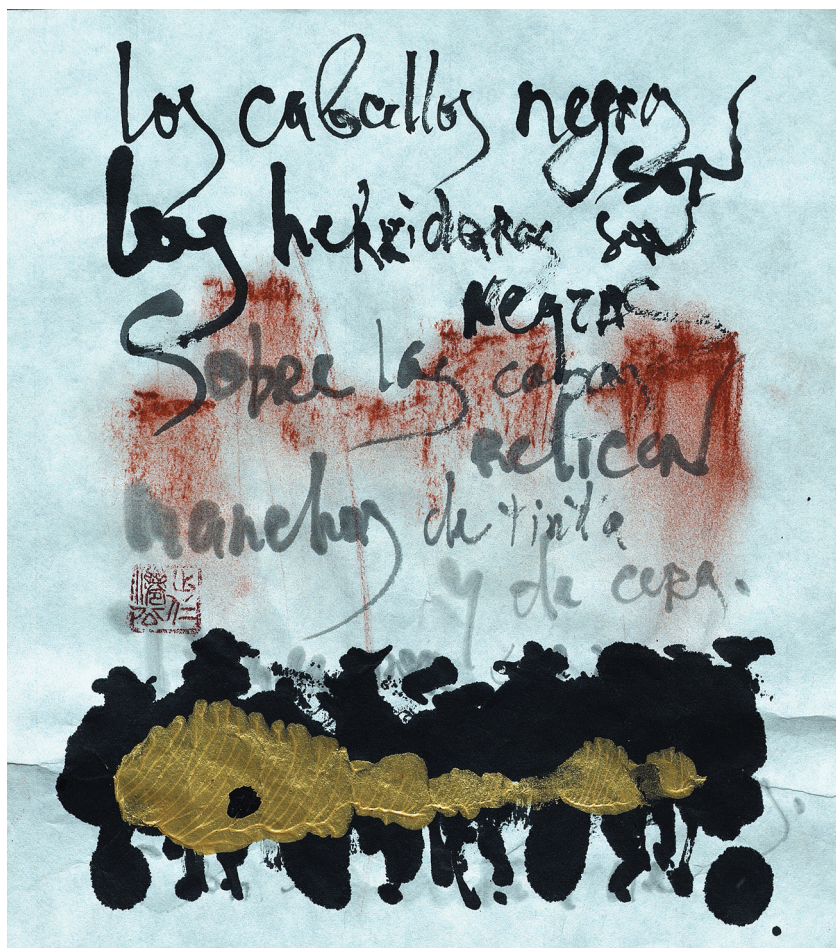 los caballos negros
son
las herraduras son
negras
Sobre las capas
relucen
manchas de tinta
y de cera.